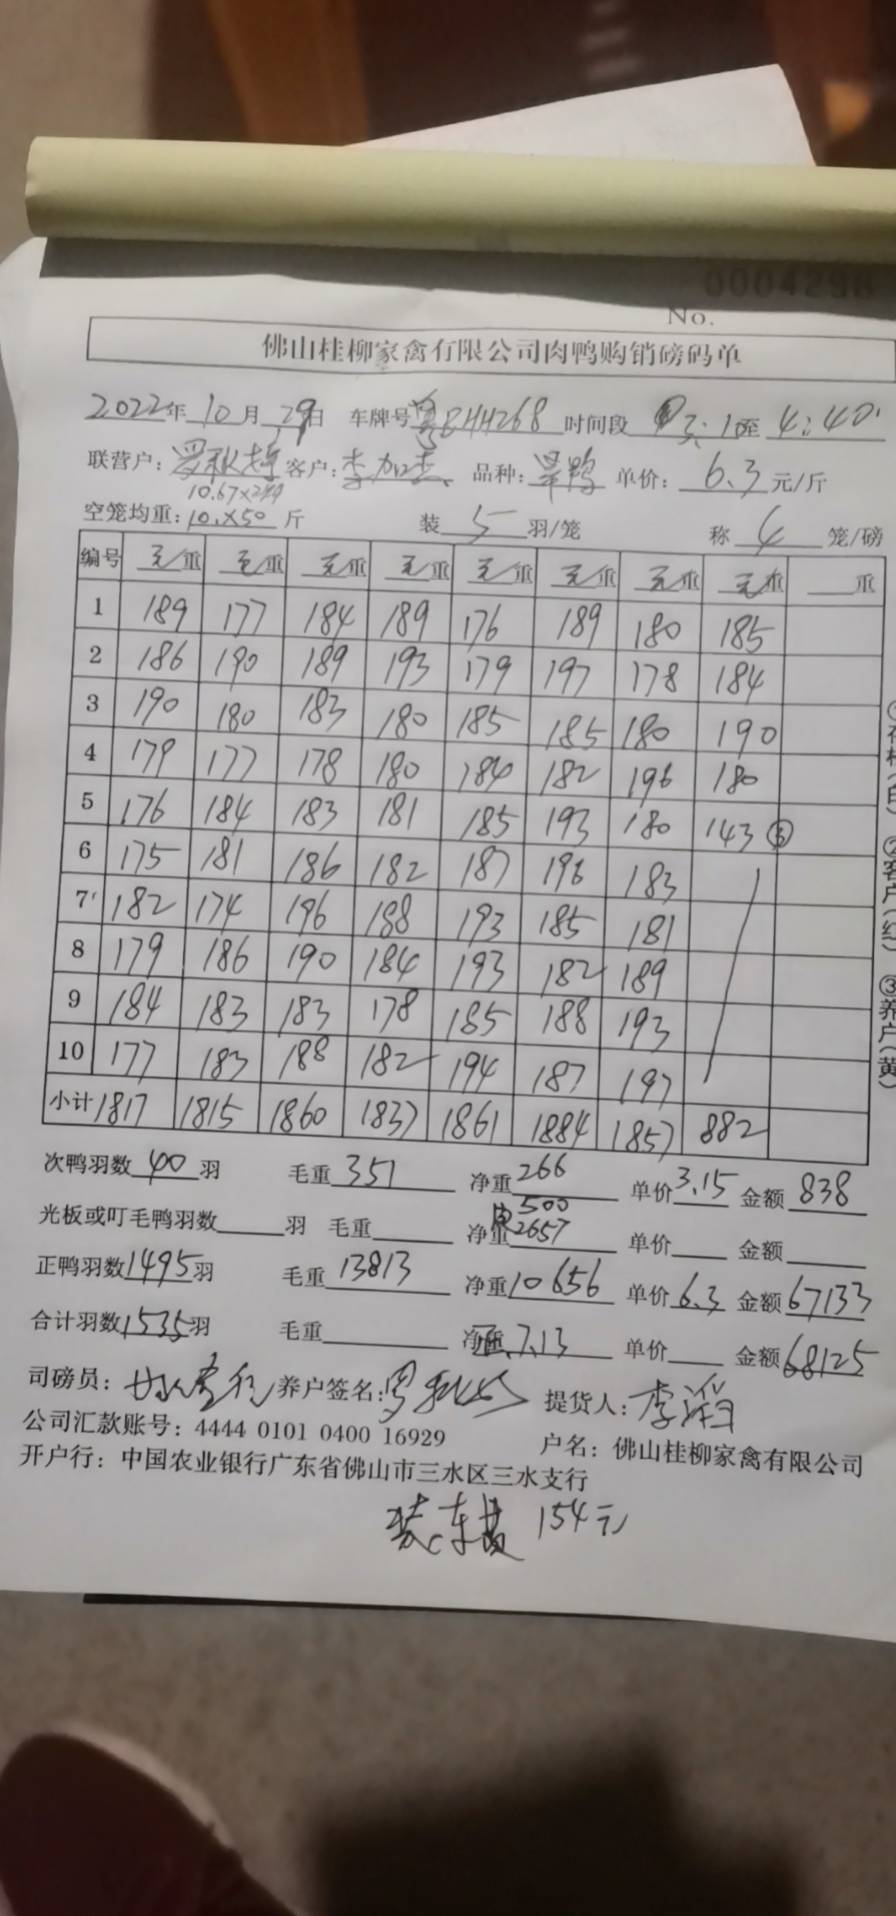 0004298
No.
佛山桂柳家禽有限公司肉鸭购销磅码单
2022年10月29日 车牌号粤EHH268 时间段 至4:40
联营户: 客户:李加 品种: 鸭 单价:6.3元/斤
10.67×249
空笼均重:10.×50斤 装5羽/笼 称4笼/磅
编号 毛重 毛重 毛重 毛重 毛重 毛重 毛重 毛重 重
1 189 177 184 189 176 189 180 185
2 186 190 189 193 179 197 178 184
3 190 180 183 180 185 185 180 190
4 179 177 178 180 184 182 196 180
5 176 184 183 181 185 193 180 143 ③
6 175 181 186 182 187 196 183
7 182 174 196 188 193 185 181
8 179 186 190 184 193 182 189
9 184 183 183 178 185 188 193
10 177 183 188 182 194 187 197
小计 1817 1815 1860 1837 1861 1884 1857 882
次鸭羽数40羽 毛重351 净重266 单价3.15 金额838
500
光板或叮毛鸭羽数 羽 毛重 净重2657 单价 金额
正鸭羽数1495羽 毛重13813 净重10656 单价6.3 金额67133
合计羽数1535羽 毛重 净重7.13 单价 金额68125
司磅员: 养户签名:罗 提货人:李滔
公司汇款账号:4444 0101 0400 16929 户名:佛山桂柳家禽有限公司
开户行:中国农业银行广东省佛山市三水区三水支行
装车费 154元
(白) ②客户(红) ③养户(黄